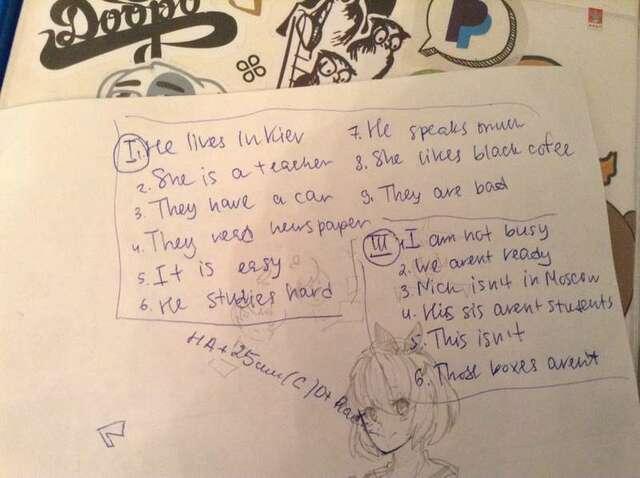 Doopo
I 1. He lives in Kiev
2. She is a teacher
3. They have a car
4. They read newspaper
5. It is easy
6. He studies hard
7. He speaks much
8. She likes black cofee
9. They are bad
III 1. I am not busy
2. We arent ready
3. Nick isn't in Moscow
4. His sis arent students
5. This isn't
6. Those boxes arent